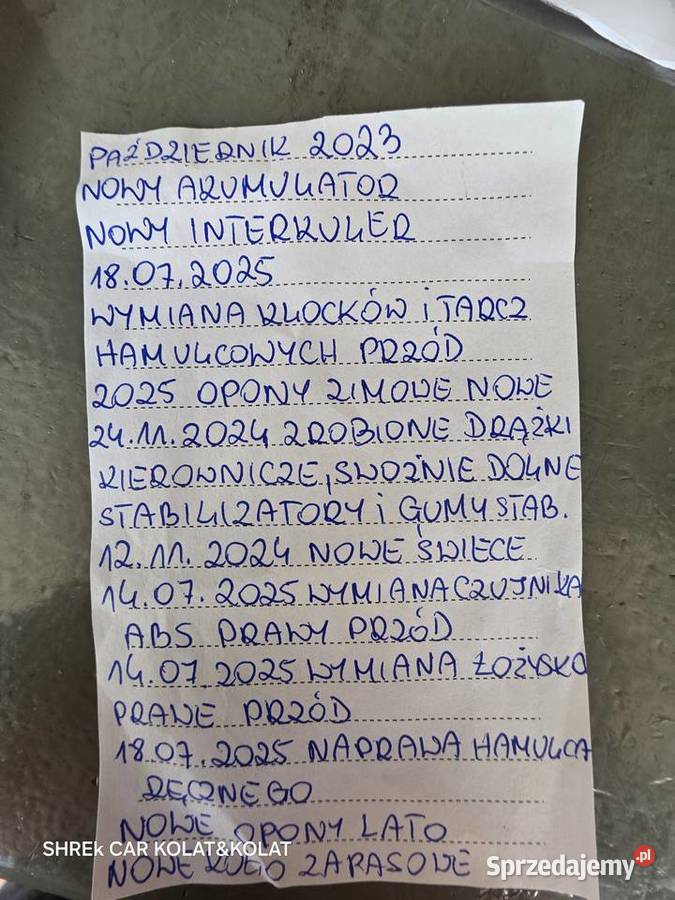 PAŹDZIERNIK 2023
NOWY AKUMULATOR
NOWY INTERKULER
18.07.2025
WYMIANA KLOCKÓW i TARCZ
HAMULCOWYCH PRZÓD
2025 OPONY ZIMOWE NOWE
24.11.2024 ZROBIONE DRĄŻKI
KIEROWNICZE, SWOŻNIE DOLNE
STABILIZATORY i GUMY STAB.
12.11.2024 NOWE ŚWIECE
14.07.2025 WYMIANA CZUJNIKA
ABS PRAWY PRZÓD
14.07.2025 WYMIANA ŁOŻYSKO
PRAWE PRZÓD
18.07.2025 NAPRAWA HAMULCA
RĘCZNEGO
NOWE OPONY LATO
NOWE KOŁO ZAPASOWE
SHREk CAR KOLAT&KOLAT
Sprzedajemy.pl